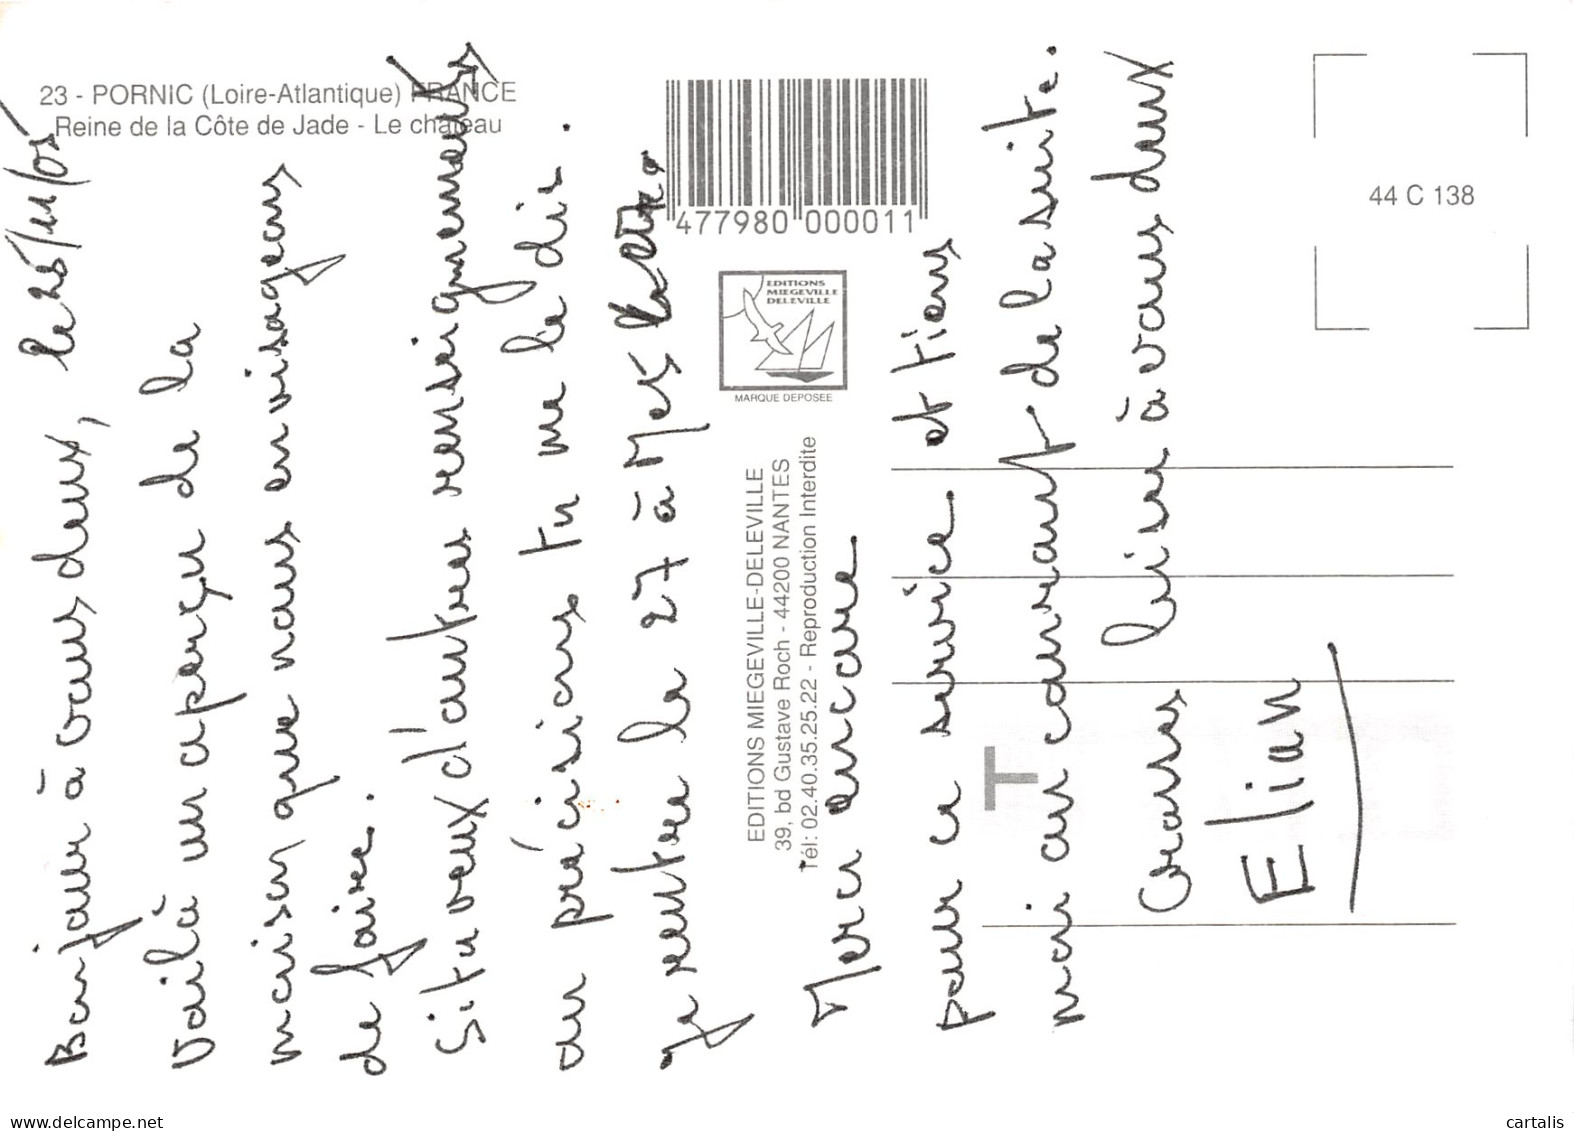 23 - PORNIC (Loire-Atlantique) FRANCE
Reine de la Côte de Jade - Le château
Bonjour à vous deux, le 25/11/05
Voilà un aperçu de la
maison que nous envisageons
de faire.
Si tu veux d'autres renseignements
ou précisions tu me le dis.
Je rentre le 27 à
Merci encore
pour ce service et tiens
moi au courant de la suite.
bise à vous deux
Grosses
Elian
477980 000011
EDITIONS
MIEGEVILLE
DELEVILLE
MARQUE DEPOSEE
EDITIONS MIEGEVILLE-DELEVILLE
39, bd Gustave Roch - 44200 NANTES
Tél: 02.40.35.25.22 - Reproduction Interdite
44 C 138
T
www.delcampe.net
cartalis